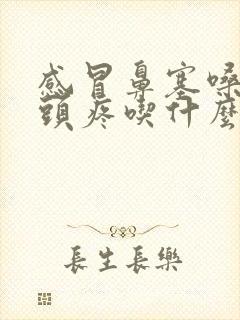 感冒鼻塞嗓
頭疼喫什麼
長生長樂